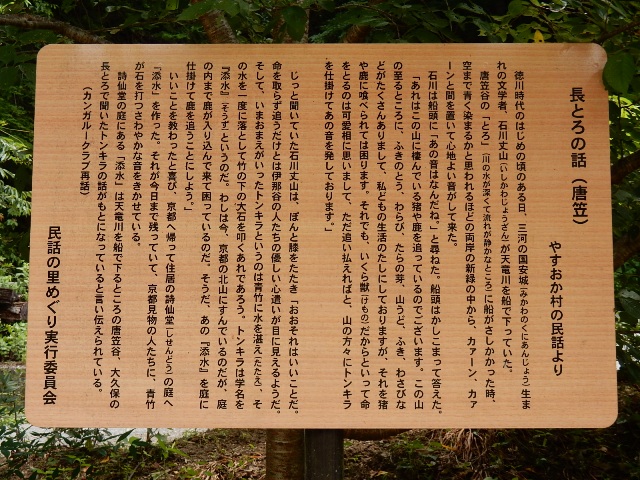 長とろの話(唐笠)
やすおか村の民話より
徳川時代のはじめの頃のある日、三河の国安城(みかわのくにあんじょう)生ま
れの文学者、石川丈山(いしかわじょうざん)が天竜川を船で下っていた。
唐笠谷の「とろ」(川の水が深くて流れが静かなところ)に船がさしかかった時、
空まで青く染まるかと思われるほどの両岸の新緑の中から、カァーン、カァ
ーンと間を置いて心地よい音がして来た。
石川は船頭に「あの音はなんだね。」と尋ねた。船頭はかしこまって答えた。
「あれはこの山に棲んでいる猪や鹿を追っているのでございます。この山
の至るところに、ふきのとう、わらび、たらの芽、山うど、ふき、わさびな
どがたくさんありまして、私どもの生活のたしにしておりますが、それを猪
や鹿に喰べられては困ります。それでも、いくら獣(けもの)だからといって命
をとるのは可愛相に思いまして、ただ追い払えればと、山の方々にトンキラ
を仕掛けてあの音を発しております。」
じっと聞いていた石川丈山は、ぽんと膝をたたき「おおそれはいいことだ。
命を取らず追うだけとは伊那谷の人たちの優しい心遣いが目に見えるようだ。
そして、いまおまえがいったトンキラというのは青竹に水を湛え(たたえ)、そ
の水を一度に落として竹の下の大石を叩くあれであろう。トンキラは学名を
『添水』(そうず)というのだ。わしは今、京都の北山にすんでいるのだが、庭
の内まで鹿が入り込んで来て困っているのだ。そうだ、あの『添水』を庭に
仕掛けて鹿を追うことにしよう。」
いいことを教わったと喜び、京都へ帰って住居の詩仙堂(しせんどう)の庭へ
「添水」を作った。それが今日まで残っていて、京都見物の人たちに、青竹
が石を打つさわやかな音をきかせている。
詩仙堂の庭にある「添水」は天竜川を船で下るところの唐笠谷、大久保の
長とろで聞いたトンキラの話がもとになっていると言い伝えられている。
(カンガルークラブ再話)
民話の里めぐり実行委員会